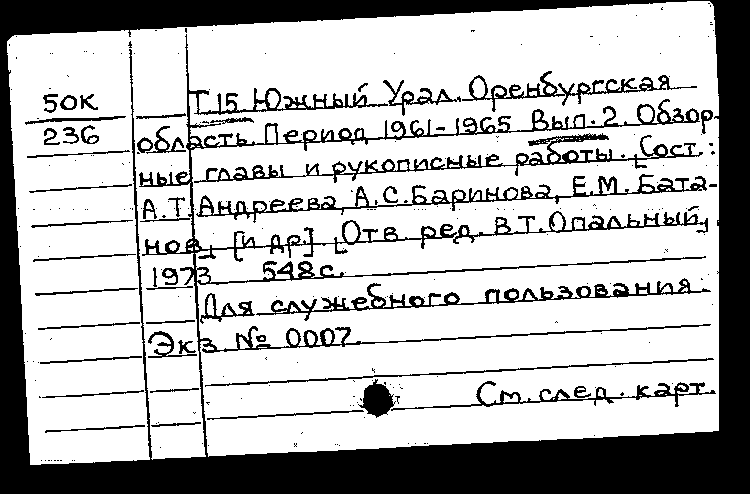 50К
236
Т.15 Южный Урал. Оренбургская
область. Период 1961-1965 Вып. 2. Обзор-
ные главы и рукописные работы. [Сост.:
А.Т. Андреева, А.С. Баринова, Е.М. Бата-
нов] [и др.]. [Отв. ред. В.Т. Опальный].
1973 548с.
Для служебного пользования.
Экз. № 0007.
См. след. карт.